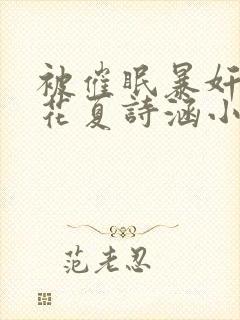 被催眠暴奸
花夏詩涵小
范老忍